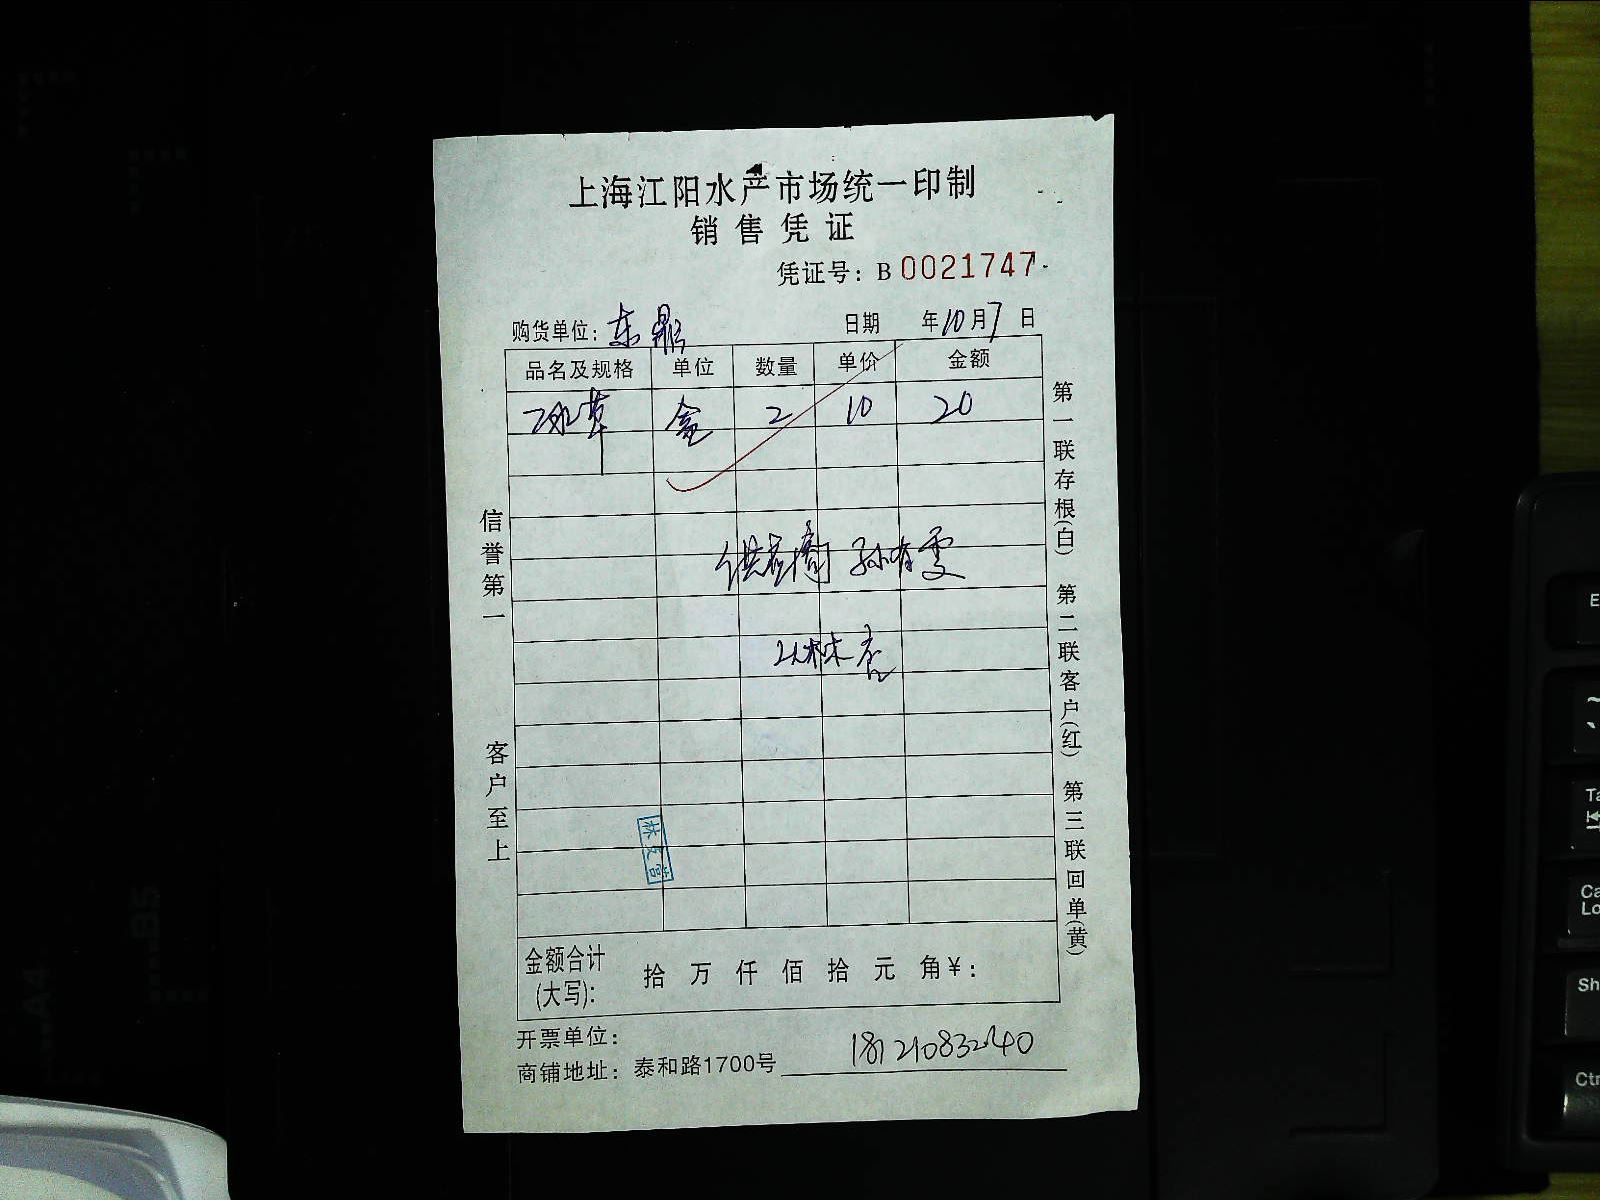 上海江阳水产市场统一印制
销售凭证
凭证号：B 0021747
购货单位：东鼎
日期 年10月7日
品名及规格 单位 数量 单价 金额
冰草 盒 2 10 20
供应商 孙有雯
信誉第一
客户至上
第一联存根(白) 第二联客户(红) 第三联回单(黄)
金额合计(大写)：拾 万 仟 佰 拾 元 角 ¥：
开票单位：
商铺地址：泰和路1700号 18121083240
E
Ta
Ca
Lo
Sh
Ctr
B5
A4